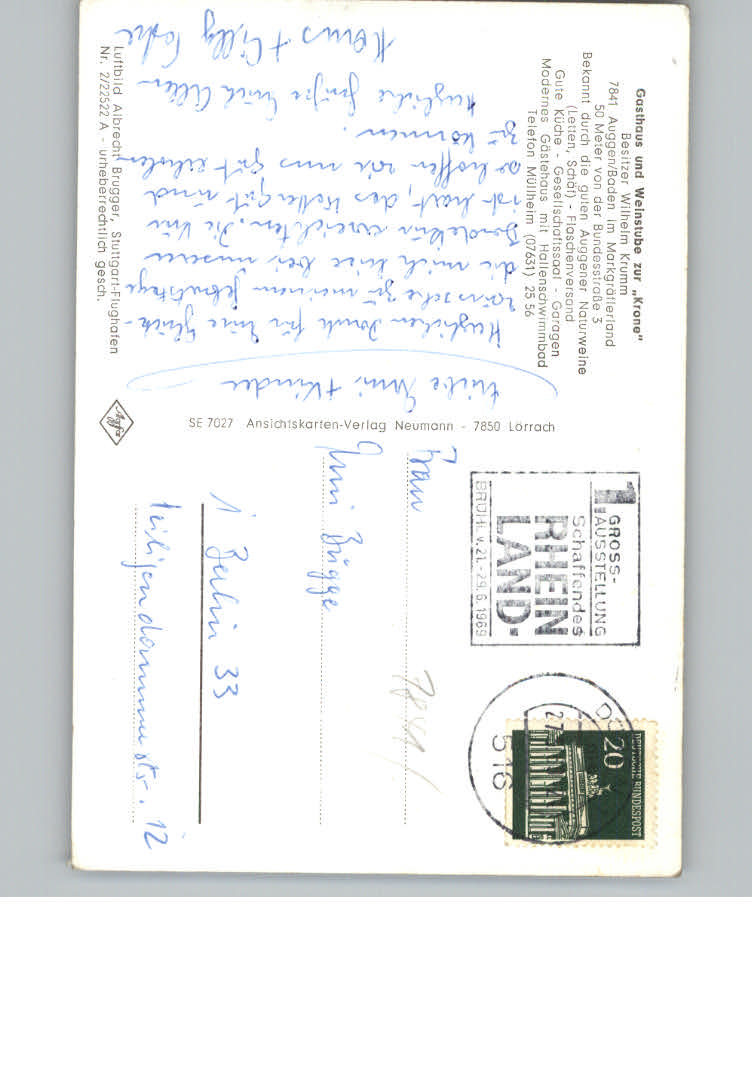 Gasthaus und Weinstube zur „Krone"
Besitzer Wilhelm Krumm
7841 Auggen/Baden im Markgräflerland
50 Meter von der Bundesstraße 3
Bekannt durch die guten Auggener Naturweine
(Letten, Schäf) - Flaschenversand
Gute Küche - Gesellschaftssaal - Garagen
Modernes Gästehaus mit Hallenschwimmbad
Telefon Müllheim (07631) 25 56
Liebe Omi + Kinder
Herzlichen Dank für Eure Glück-
wünsche zu meinem Geburtstage
die mich hier bei unserer
Badekur erreichten. Die Kur
ist hart, das Wetter gut und
so hoffen wir uns gut erholen
zu können.
Herzliche Grüße Euch Allen
Hans + Gilly
Luftbild Albrecht Brugger, Stuttgart-Flughafen
Nr. 2/22522 A - urheberrechtlich gesch.
SE 7027 Ansichtskarten-Verlag Neumann - 7850 Lörrach
Agfa
1. GROSS-
AUSSTELLUNG
Schaffendes
RHEIN
LAND-
BRÜHL v. 21.-29.6.1969
20
DEUTSCHE BUNDESPOST
27
516
Frau
Omi Brügge
1 Berlin 33
Heiligendammerstr. 12